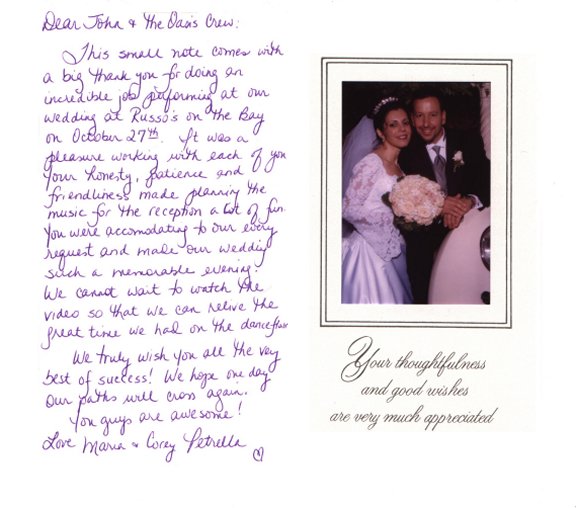 Dear John & the Oasis Crew:
This small note comes with
a big thank you for doing an
incredible job performing at our
wedding at Russo's on the Bay
on October 27th. It was a
pleasure working with each of you
Your honesty, patience and
friendliness made planning the
music for the reception a lot of fun.
You were accomodating to our every
request and made our wedding
such a memorable evening!
We cannot wait to watch the
video so that we can relive the
great time we had on the dancefloor
We truly wish you all the very
best of success! We hope one day
our paths will cross again.
You guys are awesome!
Love Maria & Corey Petrella
Your thoughtfulness
and good wishes
are very much appreciated